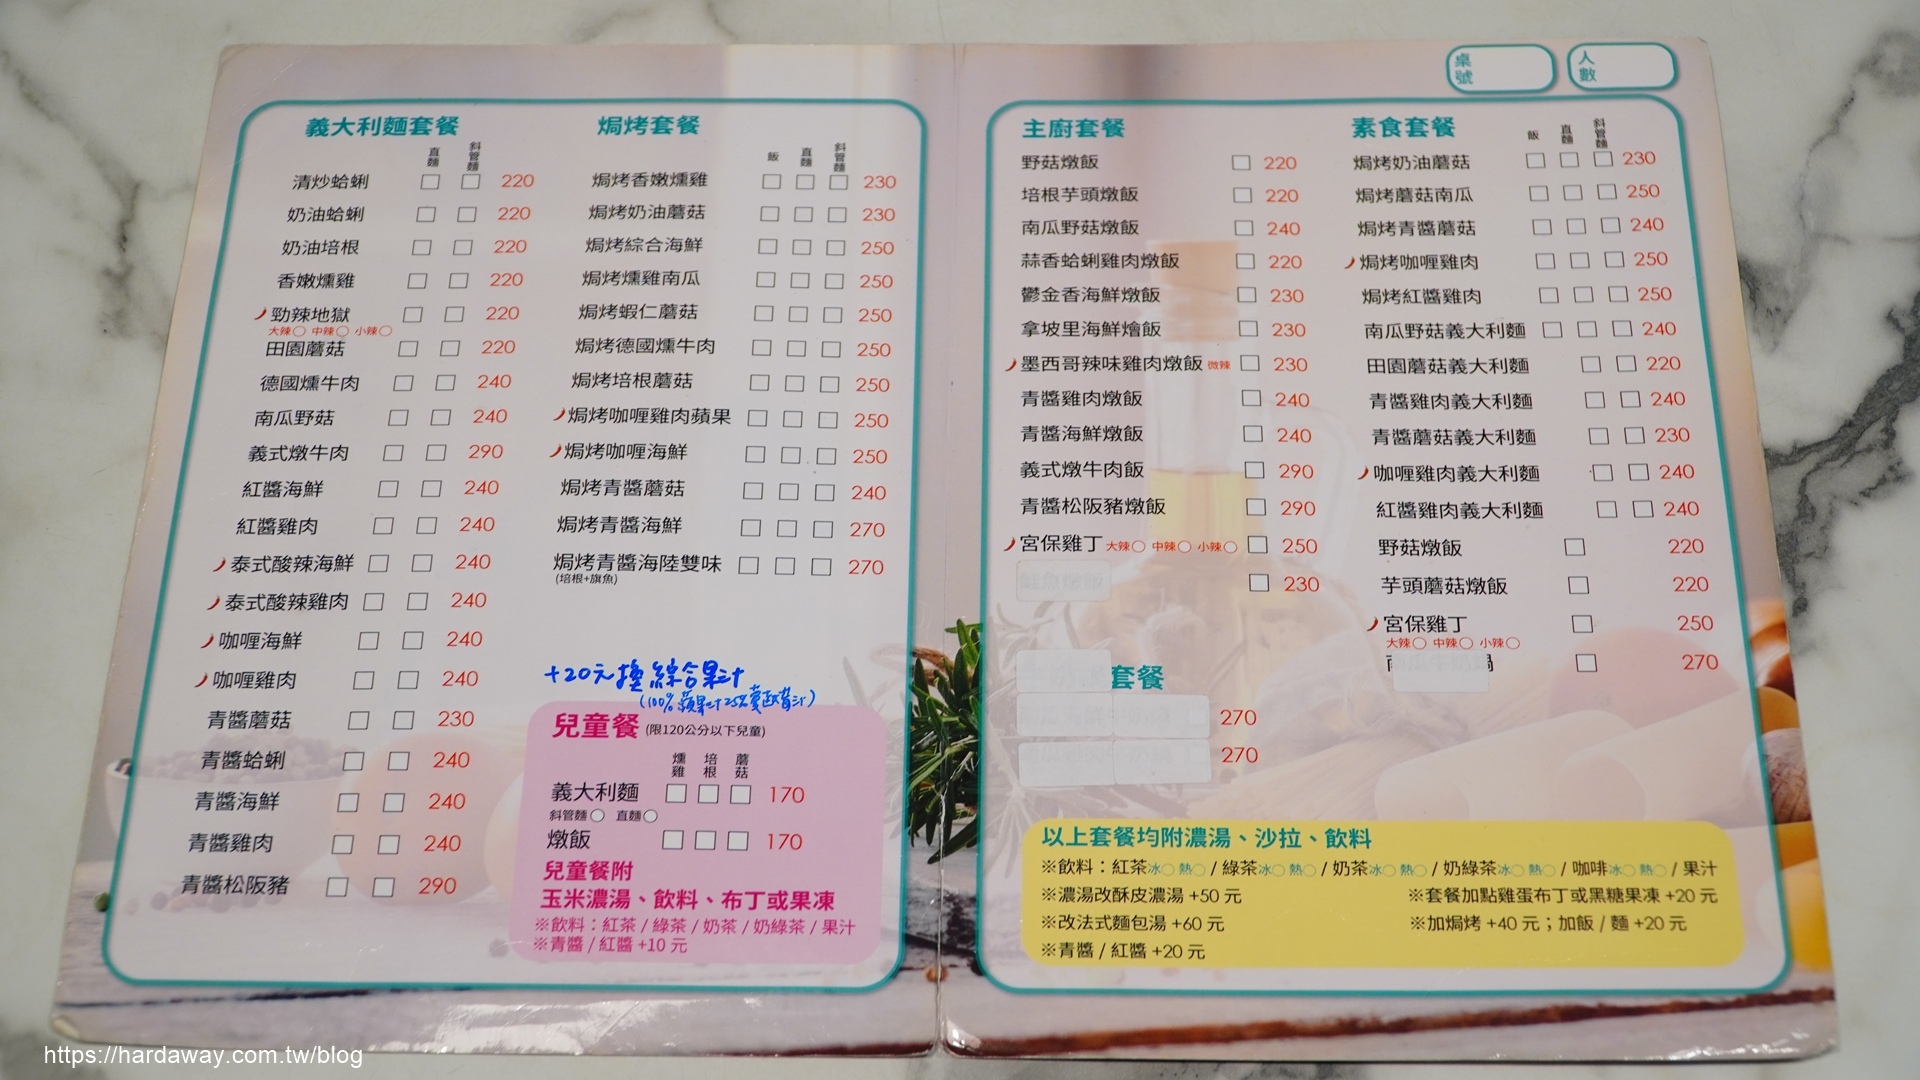 桌號
人數
義大利麵套餐
直麵 斜管麵
清炒蛤蜊 220
奶油蛤蜊 220
奶油培根 220
香嫩燻雞 220
勁辣地獄 220
大辣 中辣 小辣
田園蘑菇 220
德國燻牛肉 240
南瓜野菇 240
義式燉牛肉 290
紅醬海鮮 240
紅醬雞肉 240
泰式酸辣海鮮 240
泰式酸辣雞肉 240
咖哩海鮮 240
咖哩雞肉 240
青醬蘑菇 230
青醬蛤蜊 240
青醬海鮮 240
青醬雞肉 240
青醬松阪豬 290
焗烤套餐
飯 直麵 斜管麵
焗烤香嫩燻雞 230
焗烤奶油蘑菇 230
焗烤綜合海鮮 250
焗烤燻雞南瓜 250
焗烤蝦仁蘑菇 250
焗烤德國燻牛肉 250
焗烤培根蘑菇 250
焗烤咖喱雞肉蘋果 250
焗烤咖喱海鮮 250
焗烤青醬蘑菇 240
焗烤青醬海鮮 270
焗烤青醬海陸雙味 270
(培根+旗魚)
+20元換綜合果汁
兒童餐 (限120公分以下兒童)
燻雞 培根 蘑菇
義大利麵 170
斜管麵 直麵
燉飯 170
兒童餐附
玉米濃湯、飲料、布丁或果凍
※飲料：紅茶 / 綠茶 / 奶茶 / 奶綠茶 / 果汁
※青醬 / 紅醬 +10 元
主廚套餐
野菇燉飯 220
培根芋頭燉飯 220
南瓜野菇燉飯 240
蒜香蛤蜊雞肉燉飯 220
鬱金香海鮮燉飯 230
拿坡里海鮮燴飯 230
墨西哥辣味雞肉燉飯 微辣 230
青醬雞肉燉飯 240
青醬海鮮燉飯 240
義式燉牛肉飯 290
青醬松阪豬燉飯 290
宮保雞丁 大辣 中辣 小辣 250
230
套餐
270
270
素食套餐
飯 直麵 斜管麵
焗烤奶油蘑菇 230
焗烤蘑菇南瓜 250
焗烤青醬蘑菇 240
焗烤咖喱雞肉 250
焗烤紅醬雞肉 250
南瓜野菇義大利麵 240
田園蘑菇義大利麵 220
青醬雞肉義大利麵 240
青醬蘑菇義大利麵 230
咖哩雞肉義大利麵 240
紅醬雞肉義大利麵 240
野菇燉飯 220
芋頭蘑菇燉飯 220
宮保雞丁 250
大辣 中辣 小辣
鍋 270
以上套餐均附濃湯、沙拉、飲料
※飲料：紅茶冰 熱 / 綠茶冰 熱 / 奶茶冰 熱 / 奶綠茶冰 熱 / 咖啡冰 熱 / 果汁
※濃湯改酥皮濃湯 +50 元 ※套餐加點雞蛋布丁或黑糖果凍 +20 元
※改法式麵包湯 +60 元 ※加焗烤 +40 元；加飯 / 麵 +20 元
※青醬 / 紅醬 +20 元
https://hardaway.com.tw/blog